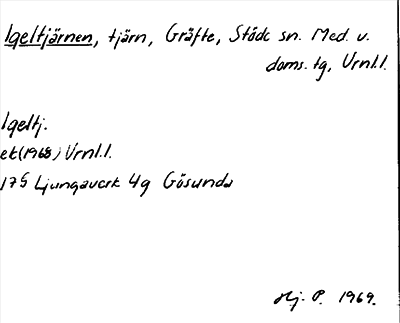 Igeltjärnen, tjärn, Gräfte, Stöde sn. Med. v.
doms. tg, Vrnl.l.
Igeltj.
ek(1968) Vrnl.l.
17G Ljungaverk 4g Gösunda
Hj. P. 1969.